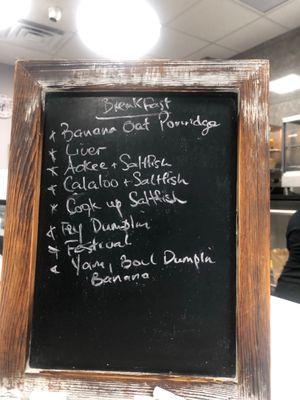 Breakfast
* Banana Oat Porridge
* Liver
* Ackee + Saltfish
* Calaloo + Saltfish
* Cook up Saltfish
* Fry Dumplin
* Festival
* Yam, Boul Dumplin
Banana